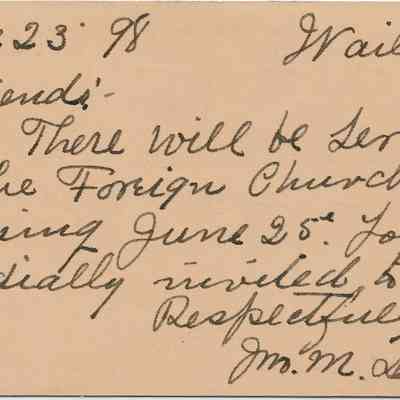 23 98 Wail
iends:-
There will be Ser
he Foreign Church
ing June 25th. Yo
dially invited to
Respectfully
Jno. M.